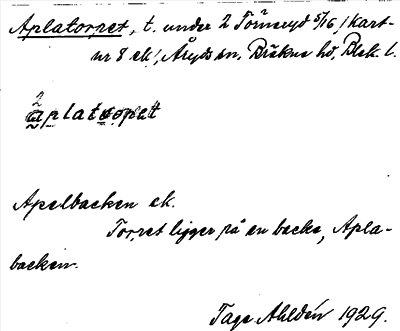 Aplatorpet, t. under 2 Törneryd 5/16 / kart-
nr 8 ek /, Åryds sn, Bräkne hd, Blek. l.
2
aplatorpet
Apelbacken ek.
Torpet ligger på en backe, Apla-
backen.
Tage Ahldén 1929.